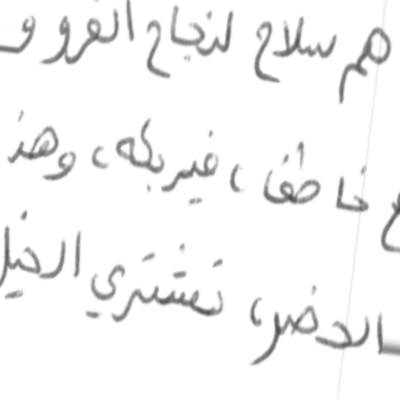 هم سلاح لنجاح الفرد و
خاطئا، فيربكه، وهذ
الحضر، تشتري الخيل